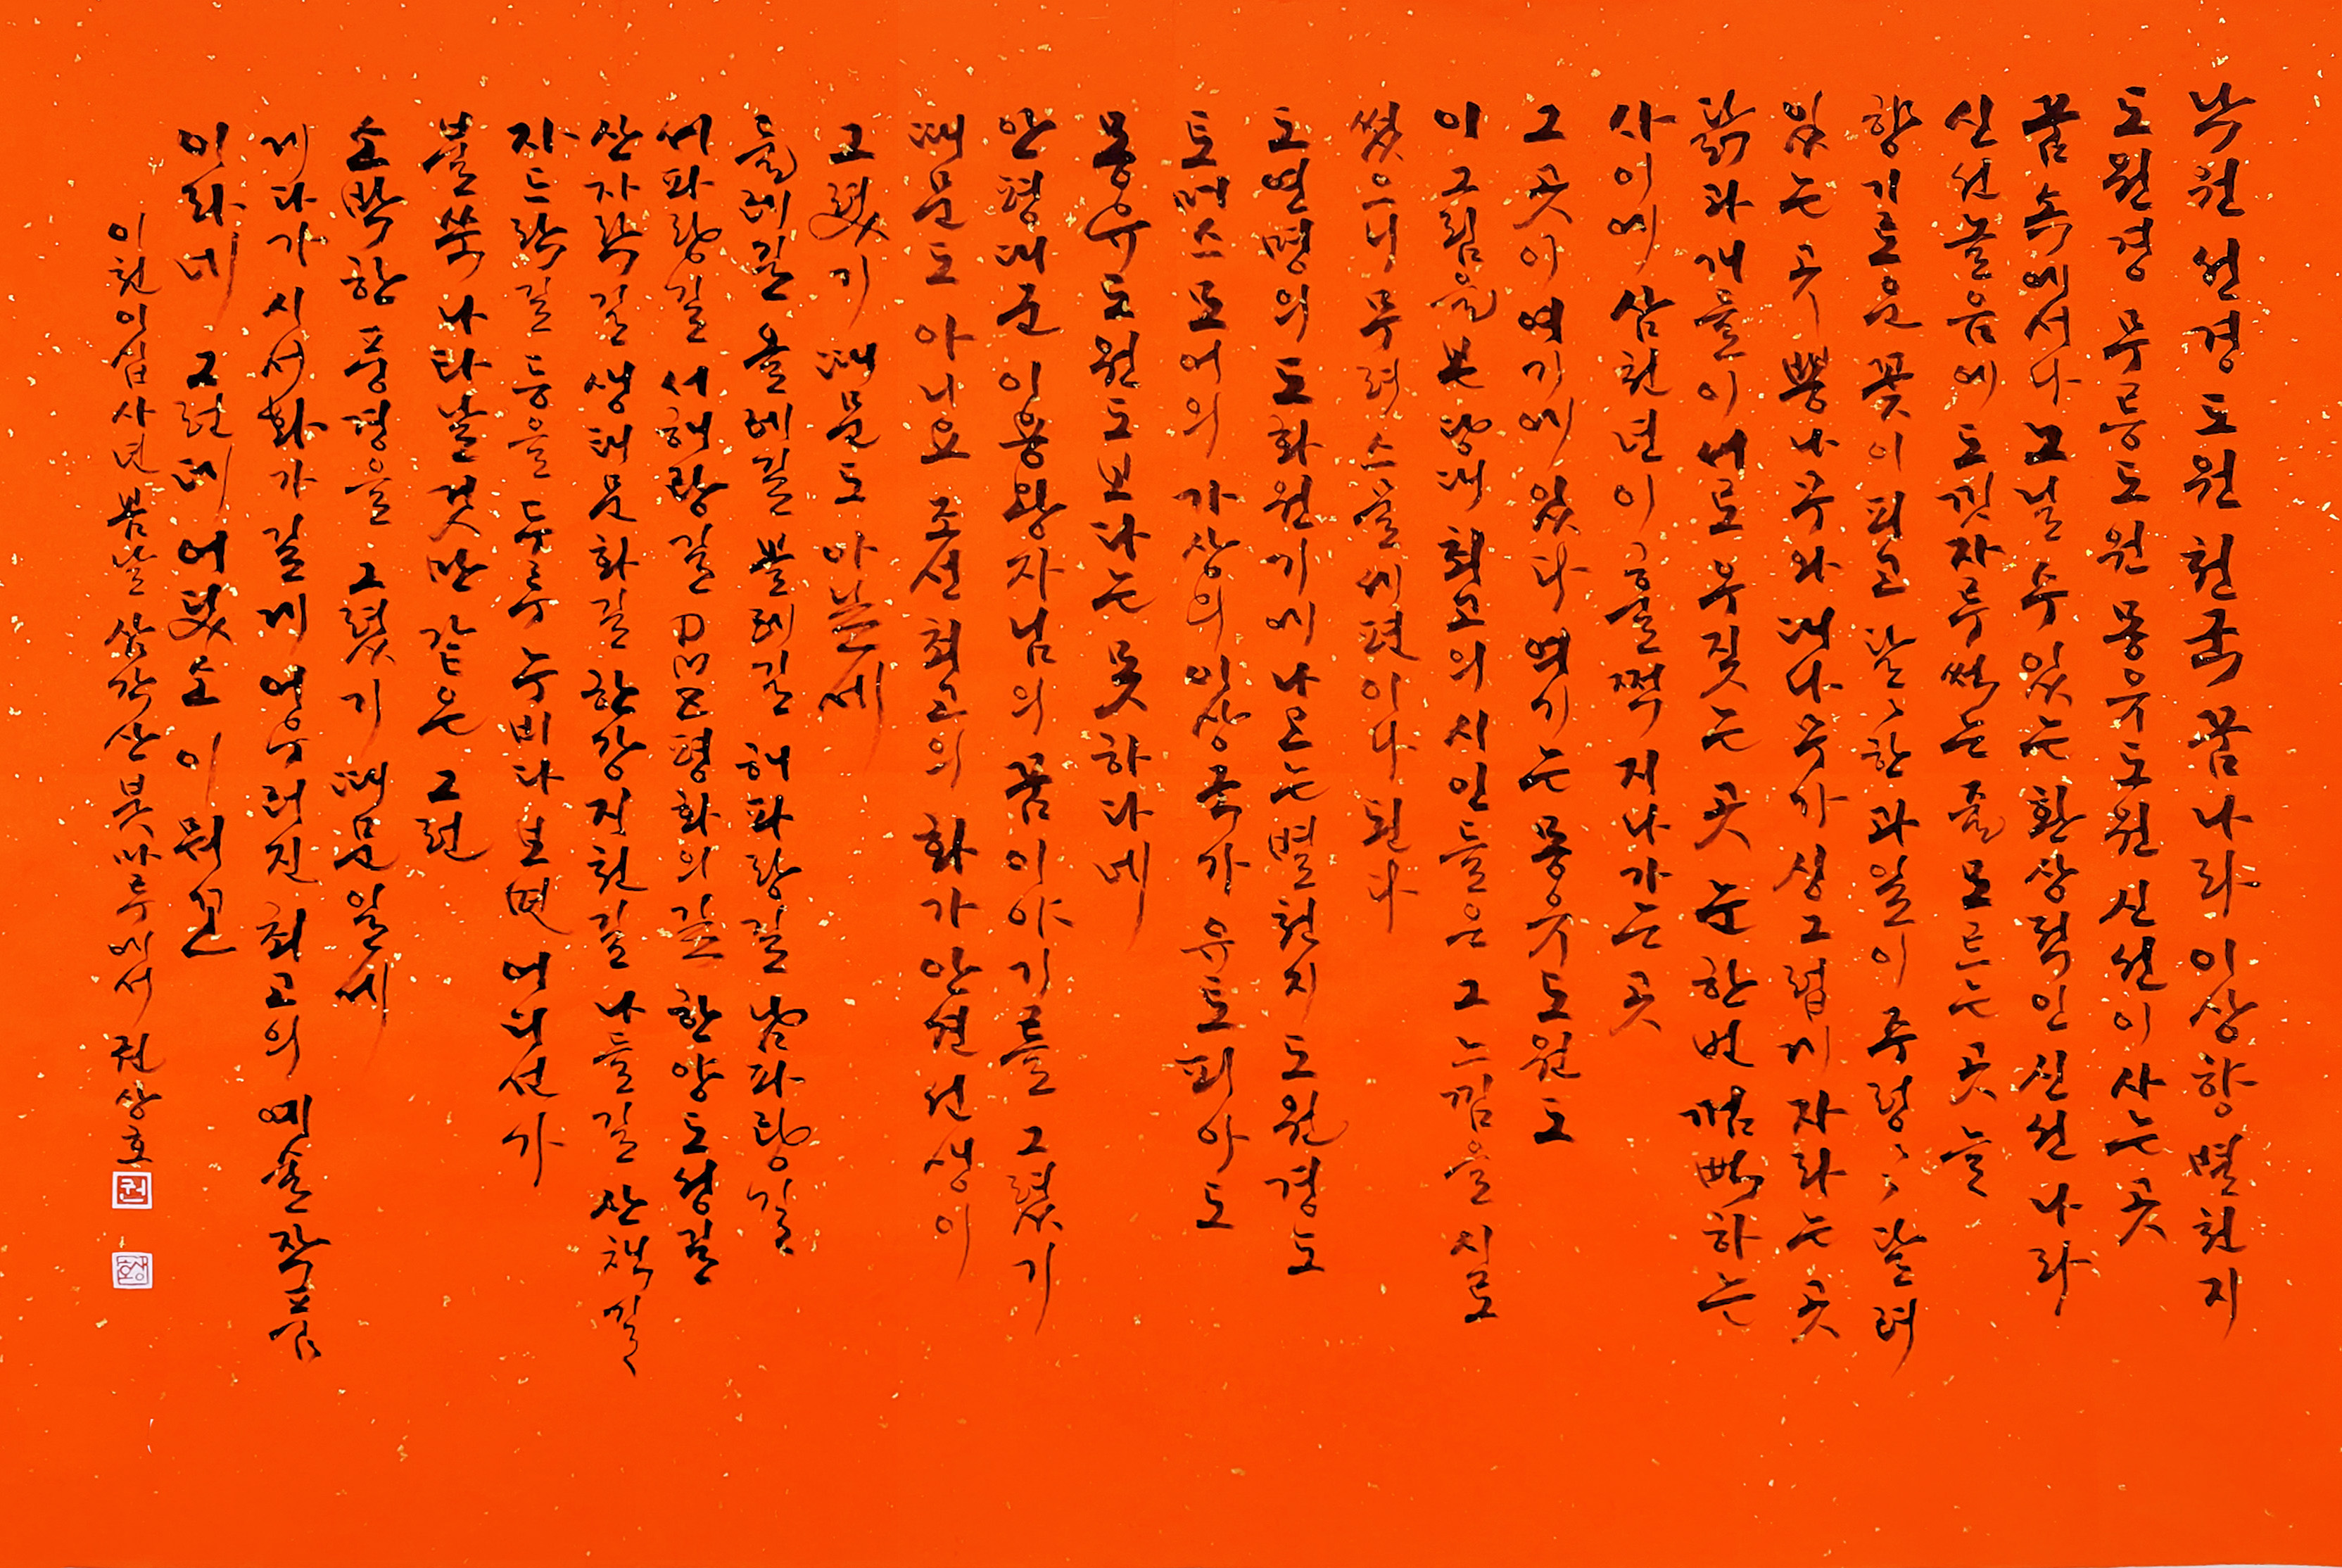 낙원 선경 도원 천국 꿈나라 이상향 별천지
도원경 무릉도원 몽유도원 신선이 사는 곳
꿈속에서나 그날 수 있는 환상적인 신선나라
신선놀음에 도낏자루 썩는 줄 모르는 곳 늘
향기로운 꽃이 피고 달〻한 과일이 주렁〻〻 달려
있는 곳 뽕나무와 대나무가 싱그럽게 자라는 곳
닭과 개들이 서로 우짖는 곳 눈 한번 껌뻑하는
사이에 삼천년이 훌쩍 지나가는 곳
그곳이 여기에 있다 여기는 몽유도원도
이 그림을 본 당대 최고의 시인들은 그 느낌을 시로
썼으니 무려 스물세편이나 된다
도연명의 도화원기에 나오는 별천지 도원경도
토머스 모어의 가상의 이상국가 유토피아도
몽유도원도보다는 못하다네
안평대군 이용 왕자님의 꿈이야기를 그렸기
때문도 아니요 조선 최고의 화가 안견 선생이
그렸기 때문도 아닐세
둘레길 올레길 볼레길 해파랑길 남파랑길
서파랑길 서해랑길 DMZ평화의길 한양도성길
산자락길 생태문화길 한강지천길 나들길 산책길
자드락길 등을 두루 누비다보면 어디선가
불쑥 나타날 것만 같은 그런
소박한 풍경을 그렸기 때문일세
게다가 시서화가 길게 어우러진 최고의 예술작품
이라네 그런데 어쨌소 이 뭐꼬
이천이십사년 봄날 삼각산 붓마루에서 권상호
권
상호